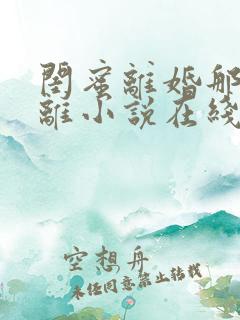 閨蜜離婚那
離小說在綫
空想舟
未经同意禁止转载